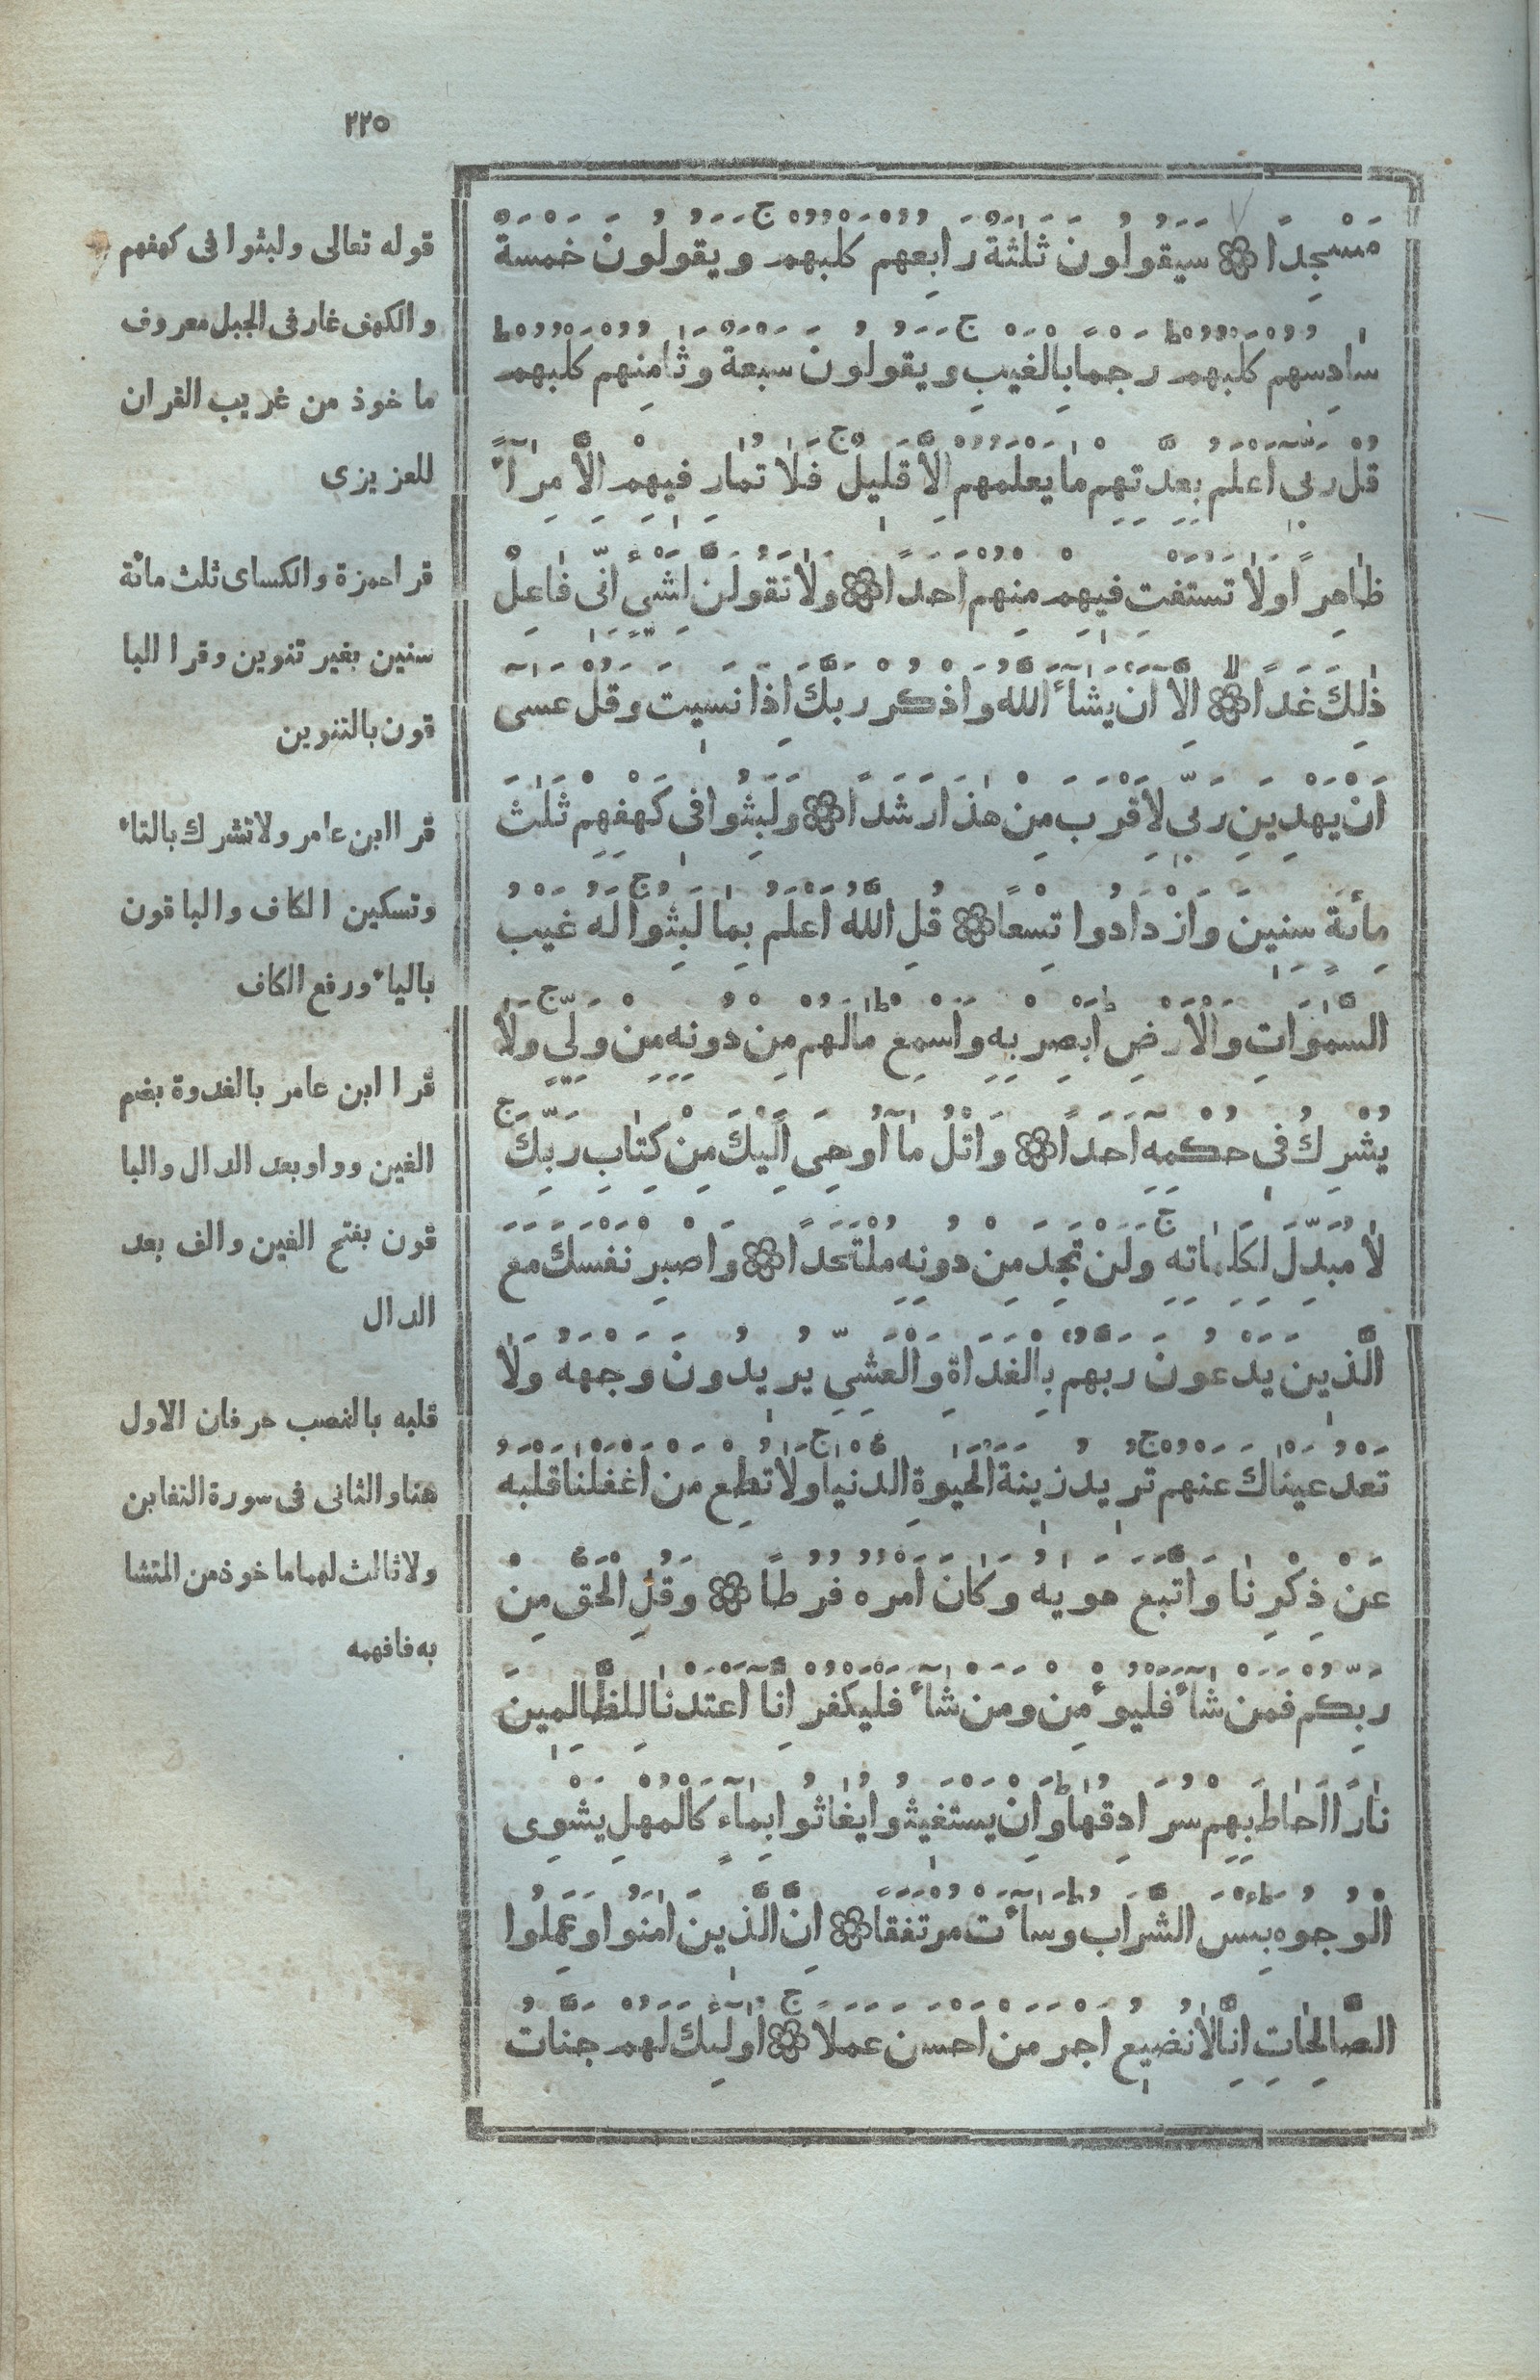 ٢٢٥
مَسْجِدًا سَيَقُولُونَ ثَلٰثَةٌ رَابِعُهُمْ كَلْبُهُمْ ج وَيَقُولُونَ خَمْسَةٌ
سَادِسُهُمْ كَلْبُهُمْ رَجْمًا بِالْغَيْبِ ج وَيَقُولُونَ سَبْعَةٌ وَثَامِنُهُمْ كَلْبُهُمْ ط
قُلْ رَبِّى اَعْلَمُ بِعِدَّتِهِمْ مَا يَعْلَمُهُمْ اِلَّا قَلِيلٌ ج فَلَا تُمَارِ فِيهِمْ اِلَّا مِرَآءً
ظَاهِرًا وَلَا تَسْتَفْتِ فِيهِمْ مِنْهُمْ اَحَدًا وَلَا تَقُولَنَّ لِشَىْءٍ اِنِّى فَاعِلٌ
ذٰلِكَ غَدًا لا اِلَّا اَنْ يَشَآءَ اللّٰهُ وَاذْكُرْ رَبَّكَ اِذَا نَسِيتَ وَقُلْ عَسٰٓى
اَنْ يَهْدِيَنِ رَبِّى لِاَقْرَبَ مِنْ هٰذَا رَشَدًا وَلَبِثُوا فِى كَهْفِهِمْ ثَلٰثَ
مِائَةٍ سِنِينَ وَازْدَادُوا تِسْعًا قُلِ اللّٰهُ اَعْلَمُ بِمَا لَبِثُوا ج لَهُ غَيْبُ
السَّمٰوَاتِ وَالْاَرْضِ ط اَبْصِرْ بِهِ وَاَسْمِعْ ط مَا لَهُمْ مِنْ دُونِهِ مِنْ وَلِىٍّ ج وَلَا
يُشْرِكُ فِى حُكْمِهِٓ اَحَدًا وَاتْلُ مَآ اُوحِىَ اِلَيْكَ مِنْ كِتَابِ رَبِّكَ ج
لَا مُبَدِّلَ لِكَلِمَاتِهِ ج وَلَنْ تَجِدَ مِنْ دُونِهِ مُلْتَحَدًا وَاصْبِرْ نَفْسَكَ مَعَ
الَّذِينَ يَدْعُونَ رَبَّهُمْ بِالْغَدَاةِ وَالْعَشِىِّ يُرِيدُونَ وَجْهَهُ وَلَا
تَعْدُ عَيْنَاكَ عَنْهُمْ ج تُرِيدُ زِينَةَ الْحَيٰوةِ الدُّنْيَا ج وَلَا تُطِعْ مَنْ اَغْفَلْنَا قَلْبَهُ
عَنْ ذِكْرِنَا وَاتَّبَعَ هَوٰيهُ وَكَانَ اَمْرُهُ فُرُطًا وَقُلِ الْحَقُّ مِنْ
رَبِّكُمْ فَمَنْ شَآءَ فَلْيُؤْمِنْ وَمَنْ شَآءَ فَلْيَكْفُرْ اِنَّآ اَعْتَدْنَا لِلظَّالِمِينَ
نَارًا اَحَاطَ بِهِمْ سُرَادِقُهَا ط وَاِنْ يَسْتَغِيثُوا يُغَاثُوا بِمَآءٍ كَالْمُهْلِ يَشْوِى
الْوُجُوهَ ط بِئْسَ الشَّرَابُ ط وَسَآءَتْ مُرْتَفَقًا اِنَّ الَّذِينَ اٰمَنُوا وَعَمِلُوا
الصَّالِحَاتِ اِنَّا لَا نُضِيعُ اَجْرَ مَنْ اَحْسَنَ عَمَلًا ج اُولٰٓئِكَ لَهُمْ جَنَّاتُ
قوله تعالى ولبثوا فى كهفهم
والكهف غار فى الجبل معروف
ماخوذ من غريب القران
للعزيزى
قرا حمزة والكساى ثلث مائة
سنين بغير تنوين وقرا البا
قون بالتنوين
قرا ابن عامر ولا تشرك بالتاء
وتسكين الكاف والباقون
بالياء ورفع الكاف
قرا ابن عامر بالغدوة بضم
الغين وواو بعد الدال والبا
قون بفتح الغين والف بعد
الدال
قلبه بالنصب حرفان الاول
هنا والثانى فى سورة التغابن
ولا ثالث لهما ماخوذ من المتشا
به فافهمه